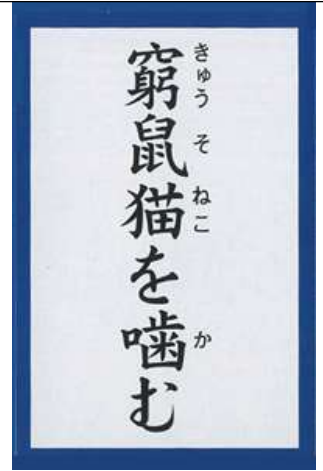 窮鼠猫を噛む
きゅうそねこか